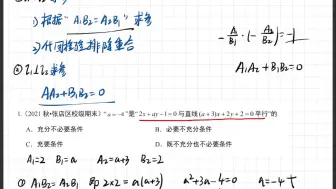 1) 根据“A₁B₂=A₂B₁”求参
2) 代回检验排除重合
② l₁⊥l₂求参
A₁A₂+B₁B₂=0
-A₁/B₁·(-A₂/B₂)=-1
A₁A₂+B₁B₂=0
1.（2021秋•张店区校级期末）“a=-4”是“2x+ay-1=0与直线(a+3)x+2y+2=0平行”的
A．充分不必要条件 B．必要不充分条件
C．充要条件 D．既不充分也不必要条件
A₁=2 B₁=a A₂=a+3 B₂=2
① A₁B₂=A₂B₁ 即 2×2=a(a+3) a²+3a-4=0 a=-4